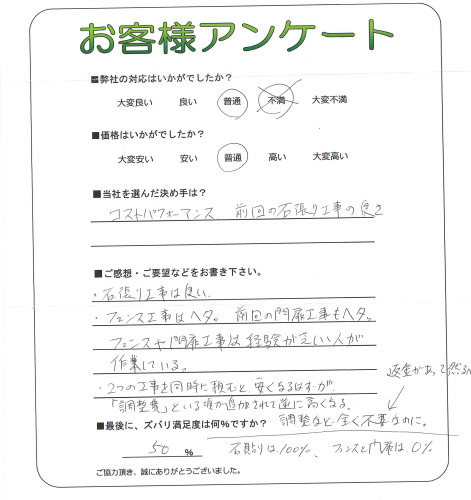 お客様アンケート
■弊社の対応はいかがでしたか？
大変良い 良い 普通 不満 大変不満
■価格はいかがでしたか？
大変安い 安い 普通 高い 大変高い
■当社を選んだ決め手は？
コストパフォーマンス 前回の石張り工事の良さ
■ご感想・ご要望などをお書き下さい。
・石張り工事は良い.
・フェンス工事はヘタ。前回の門扉工事もヘタ。
フェンスや門扉工事は経験が乏しい人が
作業している。
・2つの工事を同時に頼むと安くなるはずが、
「調整費」という項が追加されて逆に高くなる.
返金があって然るべき
調整など全く不要なのに。
■最後に、ズバリ満足度は何％ですか？
50 ％
石貼りは100%、フェンスと門扉は0%
ご協力頂き、誠にありがとうございました。